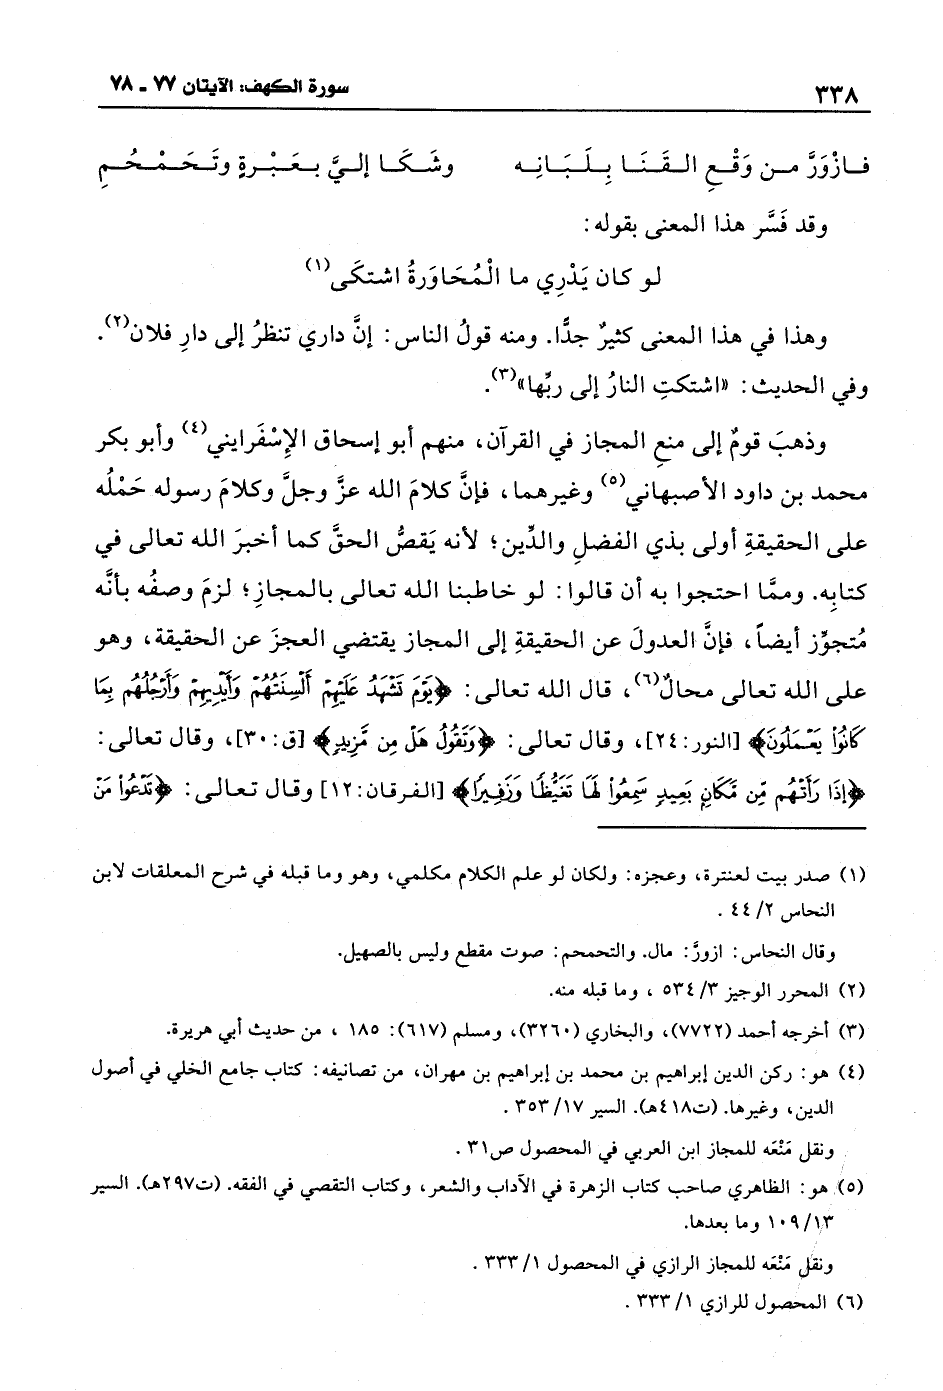 ٣٣٨ سورة الكهف: الآيتان ٧٧ ـ ٧٨
فـازْوَرَّ مـن وَقْـعِ الـقَـنَـا بِـلَـبَـانِـه وشَـكَـا إلـيَّ بـعَـبْـرةٍ وتَـحَـمْـحُـمِ
وقد فَسَّر هذا المعنى بقوله:
لو كان يَدْرِي ما الْمُحَاوَرةُ اشتكَى(١)
وهذا في هذا المعنى كثيرٌ جدًّا. ومنه قولُ الناس: إنَّ داري تنظرُ إلى دارِ فلان(٢).
وفي الحديث: «اشتكتِ النارُ إلى ربِّها»(٣).
وذهبَ قومٌ إلى منعِ المجاز في القرآن، منهم أبو إسحاق الإسْفَرايني(٤) وأبو بكر
محمد بن داود الأصبهاني(٥) وغيرهما، فإنَّ كلامَ الله عزَّ وجلَّ وكلامَ رسوله حَمْلُه
على الحقيقةِ أولى بذي الفضلِ والدِّين؛ لأنه يَقصُّ الحقَّ كما أخبرَ الله تعالى في
كتابِه. وممَّا احتجوا به أن قالوا: لو خاطبنا الله تعالى بالمجازِ؛ لزمَ وصفُه بأنَّه
مُتجوِّز أيضاً، فإنَّ العدولَ عن الحقيقةِ إلى المجاز يقتضي العجزَ عن الحقيقة، وهو
على الله تعالى محالٌ(٦)، قال الله تعالى: ﴿يَوْمَ تَشْهَدُ عَلَيْهِمْ أَلْسِنَتُهُمْ وَأَيْدِيهِمْ وَأَرْجُلُهُم بِمَا
كَانُوا۟ يَعْمَلُونَ﴾ [النور:٢٤]، وقال تعالى: ﴿وَتَقُولُ هَلْ مِن مَّزِيدٍ﴾ [ق:٣٠]، وقال تعالى:
﴿إِذَا رَأَتْهُم مِّن مَّكَانٍ بَعِيدٍ سَمِعُوا۟ لَهَا تَغَيُّظًا وَزَفِيرًا﴾ [الفرقان:١٢] وقال تـعـالـى: ﴿تَدْعُوا۟ مَنْ
(١) صدر بيت لعنترة، وعجزه: ولكان لو علم الكلام مكلمي، وهو وما قبله في شرح المعلقات لابن
النحاس ٢/ ٤٤ .
وقال النحاس: ازورَّ: مال. والتحمحم: صوت مقطع وليس بالصهيل.
(٢) المحرر الوجيز ٣/ ٥٣٤ ، وما قبله منه.
(٣) أخرجه أحمد (٧٧٢٢)، والبخاري (٣٢٦٠)، ومسلم (٦١٧): ١٨٥ ، من حديث أبي هريرة.
(٤) هو: ركن الدين إبراهيم بن محمد بن إبراهيم بن مهران، من تصانيفه: كتاب جامع الخلي في أصول
الدين، وغيرها. (ت٤١٨هـ). السير ١٧/ ٣٥٣ .
ونقل مَنْعَه للمجاز ابن العربي في المحصول ص٣١ .
(٥) هو: الظاهري صاحب كتاب الزهرة في الآداب والشعر، وكتاب التقصي في الفقه. (ت٢٩٧هـ). السير
١٣/ ١٠٩ وما بعدها.
ونقل مَنْعَه للمجاز الرازي في المحصول ١/ ٣٣٣ .
(٦) المحصول للرازي ١/ ٣٣٣ .